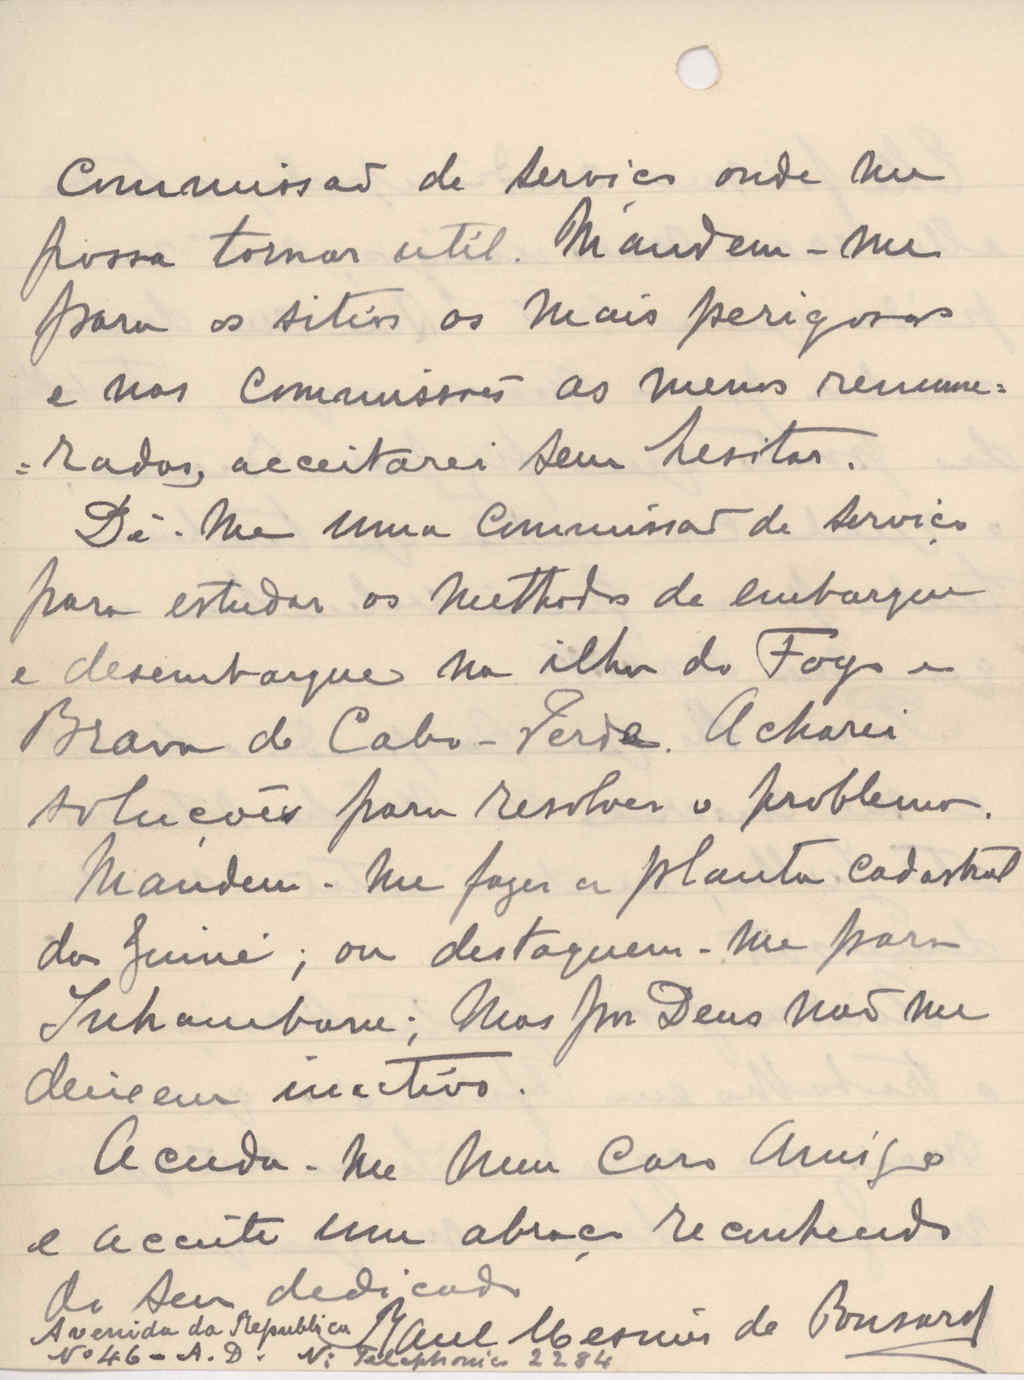 Commissaõ de serviço onde me
possa tornar util. Mandem-me
para os sitios os mais perigosos
e nas commissoẽs as menos remune=
=radas, acceitarei sem hesitar.
Dê-me uma commissaõ de serviço
para estudar os methodos de embarque
e desembarque na ilha do Fogo e
Brava de Cabo-Verde. Acharei
soluçoẽs para resolver o problema.
Mandem-me fazer a planta cadastral
da Guiné; ou destaquem-me para
Inhambane; mas por Deus naõ me
deixem inactivo.
Acuda-me meu caro Amigo
e acceite um abraço reconhecido
do seu dedicado
Raul Mesnier de Ponsard
Avenida da Republica
Nº 46-A. D. Nº Telephonico 2284